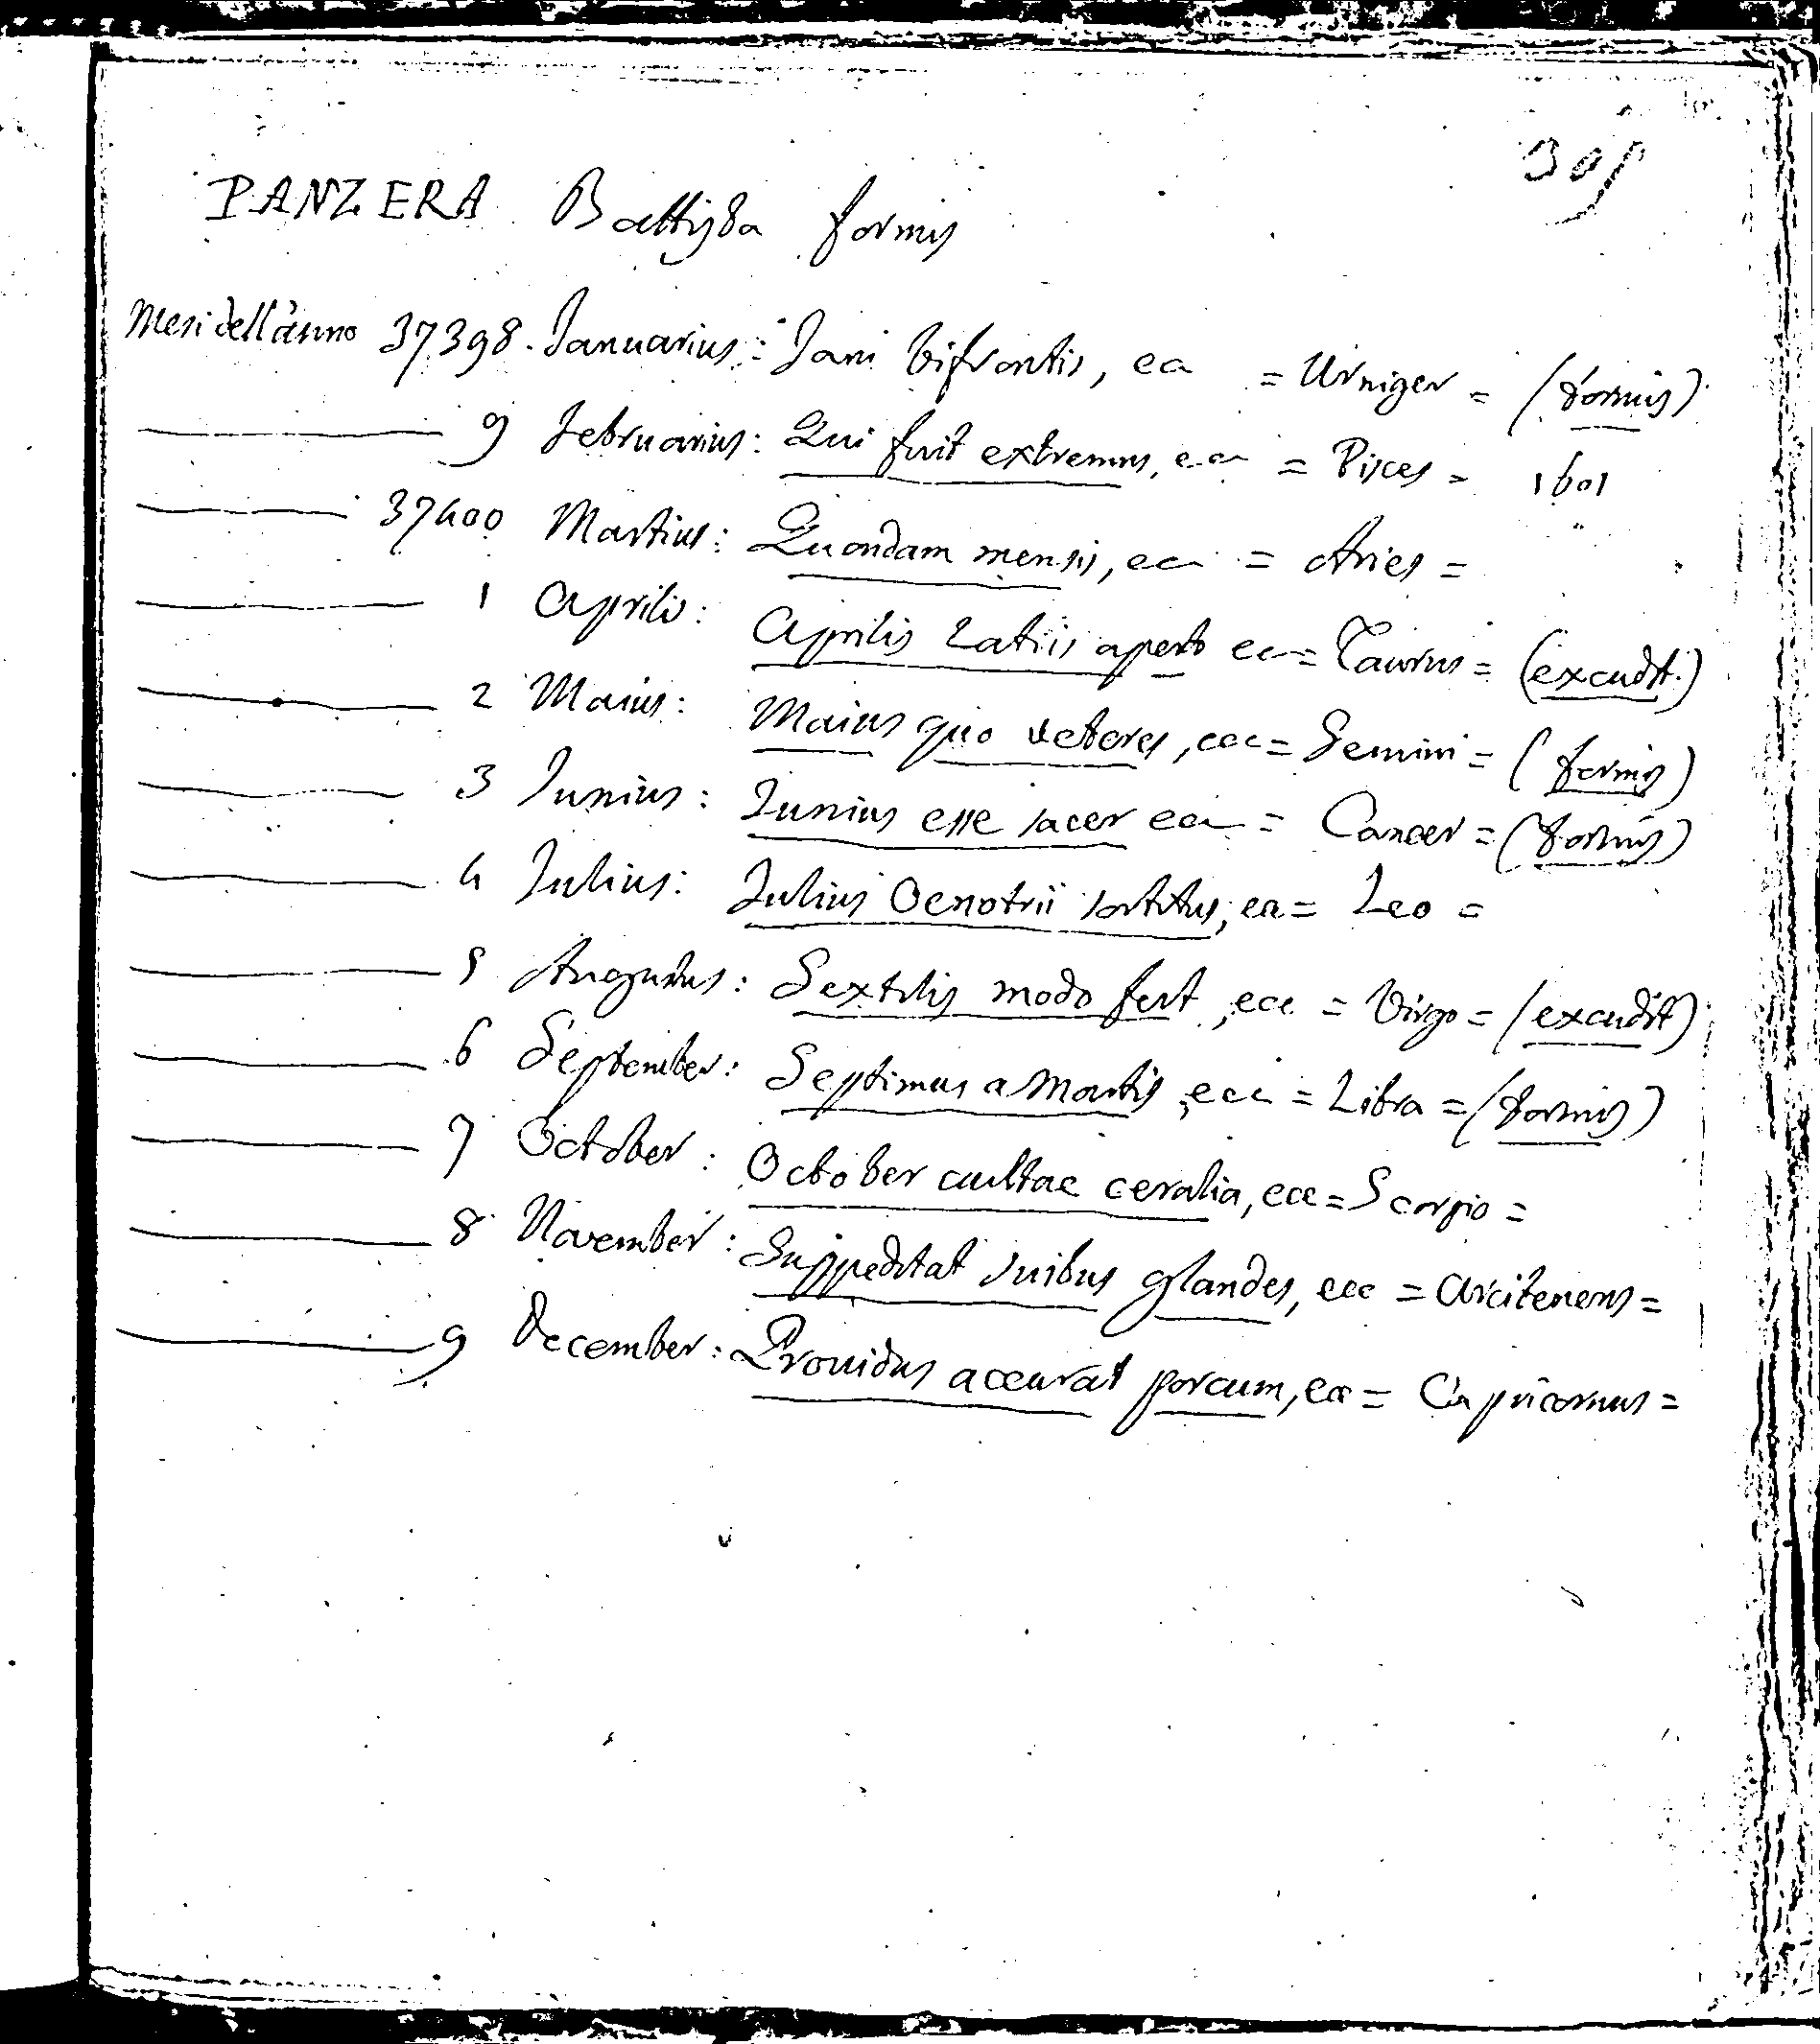 PANZERA Battista formis
Mesi dell'anno 37398. Ianuarius: Iani bifrontis, ecc = Urniger = (formis)
9 Februarius: Qui fuit extremus, ecc = Pisces = 1601
37400 Martius: Quondam mensis, ecc = Aries =
1 Aprilis: Aprilis Latiis aperto ecc = Taurus = (excudit)
2 Maius: Maius quo veteres, ecc = Gemini = (formis)
3 Iunius: Iunius esse sacer ecc = Cancer = (formis)
4 Iulius: Iulius Oenotrii sortitus, ecc = Leo =
5 Augustus: Sextilis modo fert, ecc = Virgo = (excudit)
6 September: Septimus a Martis, ecc = Libra = (formis)
7 October: October cultae ceralia, ecc = Scorpio =
8 November: Suppeditat suibus glandes, ecc = Arcitenens =
9 December: Providus accurat porcum, ecc = Capricornus =